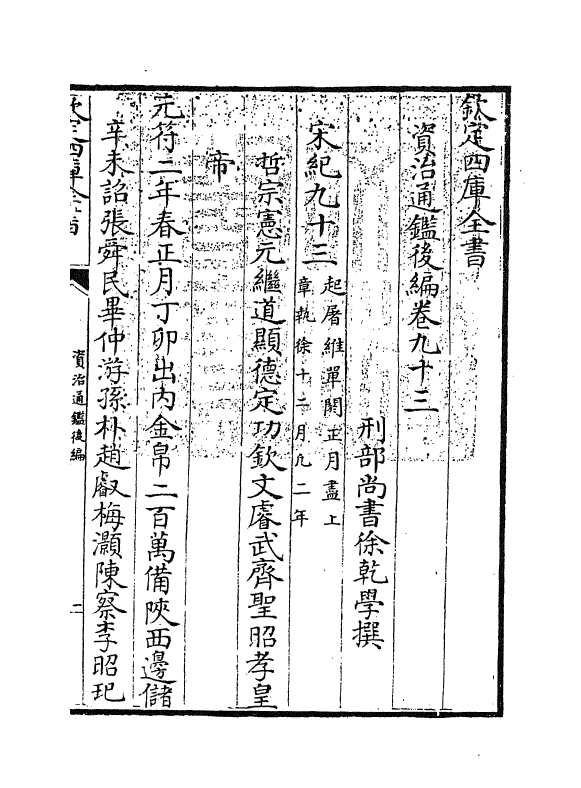 欽定四庫全書
資治通鑑後編卷九十三
刑部尚書徐乾學撰
宋紀九十三
起屠維單閼正月盡上
章執徐十二月凡二年
哲宗憲元繼道顯德定功欽文睿武齊聖昭孝皇
帝
元符二年春正月丁卯出内金帛二百萬備陜西邊儲
辛未詔張舜民畢仲游孫朴趙叡梅灝陳察李昭玘
欽定四庫全書
資治通鑑後編